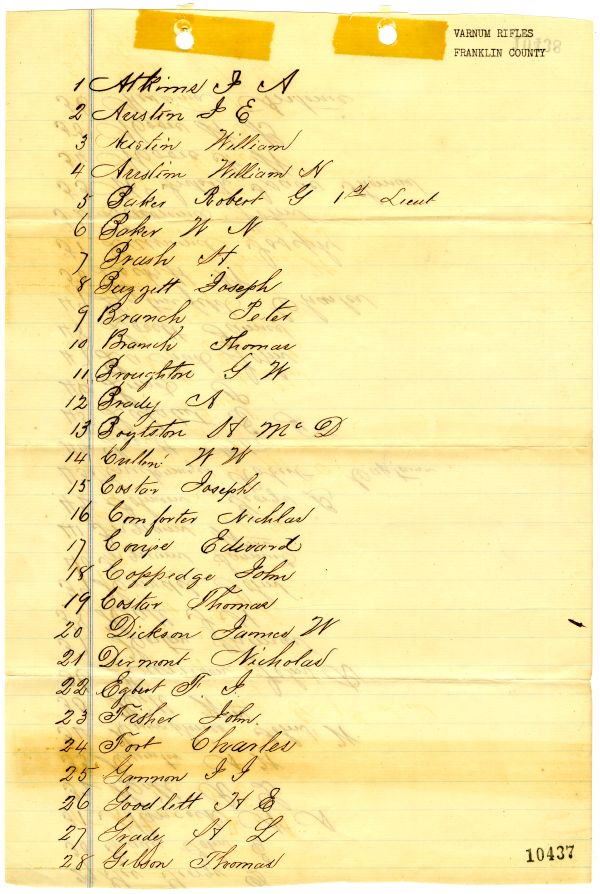 VARNUM RIFLES
FRANKLIN COUNTY
10438
1 Atkins J A
2 Auston J E
3 Austin William
4 Austin William N
5 Baker Robert G 1st Lieut
6 Baker W N
7 Brush H
8 Buzzett Joseph
9 Branch Peter
10 Branch Thomas
11 Broughton G W
12 Brady A
13 Boytston H Mc D
14 Cullin W W
15 Costar Joseph
16 Comforter Nichlas
17 Coupe Edward
18 Coppedge John
19 Costar Thomas
20 Dickson James W
21 Dermont Nicholas
22 Egbert F. J.
23 Fisher John.
24 Fort Charles
25 Gannon J J
26 Goodlett H E
27 Grady H L
28 Gibson Thomas
10437